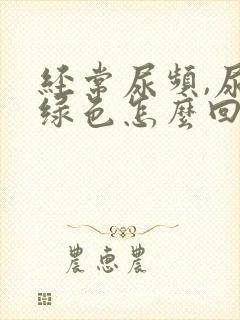 經常尿頻,尿
綠色怎麼回
農惠農